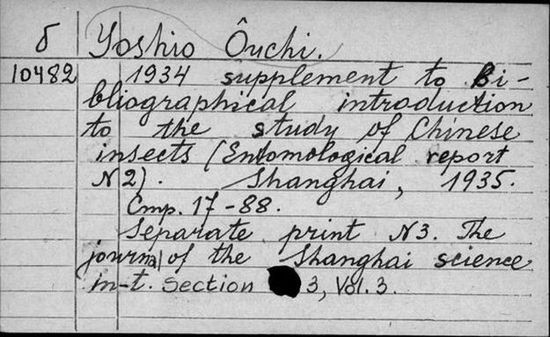 б Yoshio Ôuchi.
10482 1934 supplement to Bi-
bliographical introduction
to the study of Chinese
insects (Entomological report
N2). Shanghai, 1935.
Cmp. 17-88.
Separate print N3. The
journal of the Shanghai science
in-t. Section 3, Vol. 3.